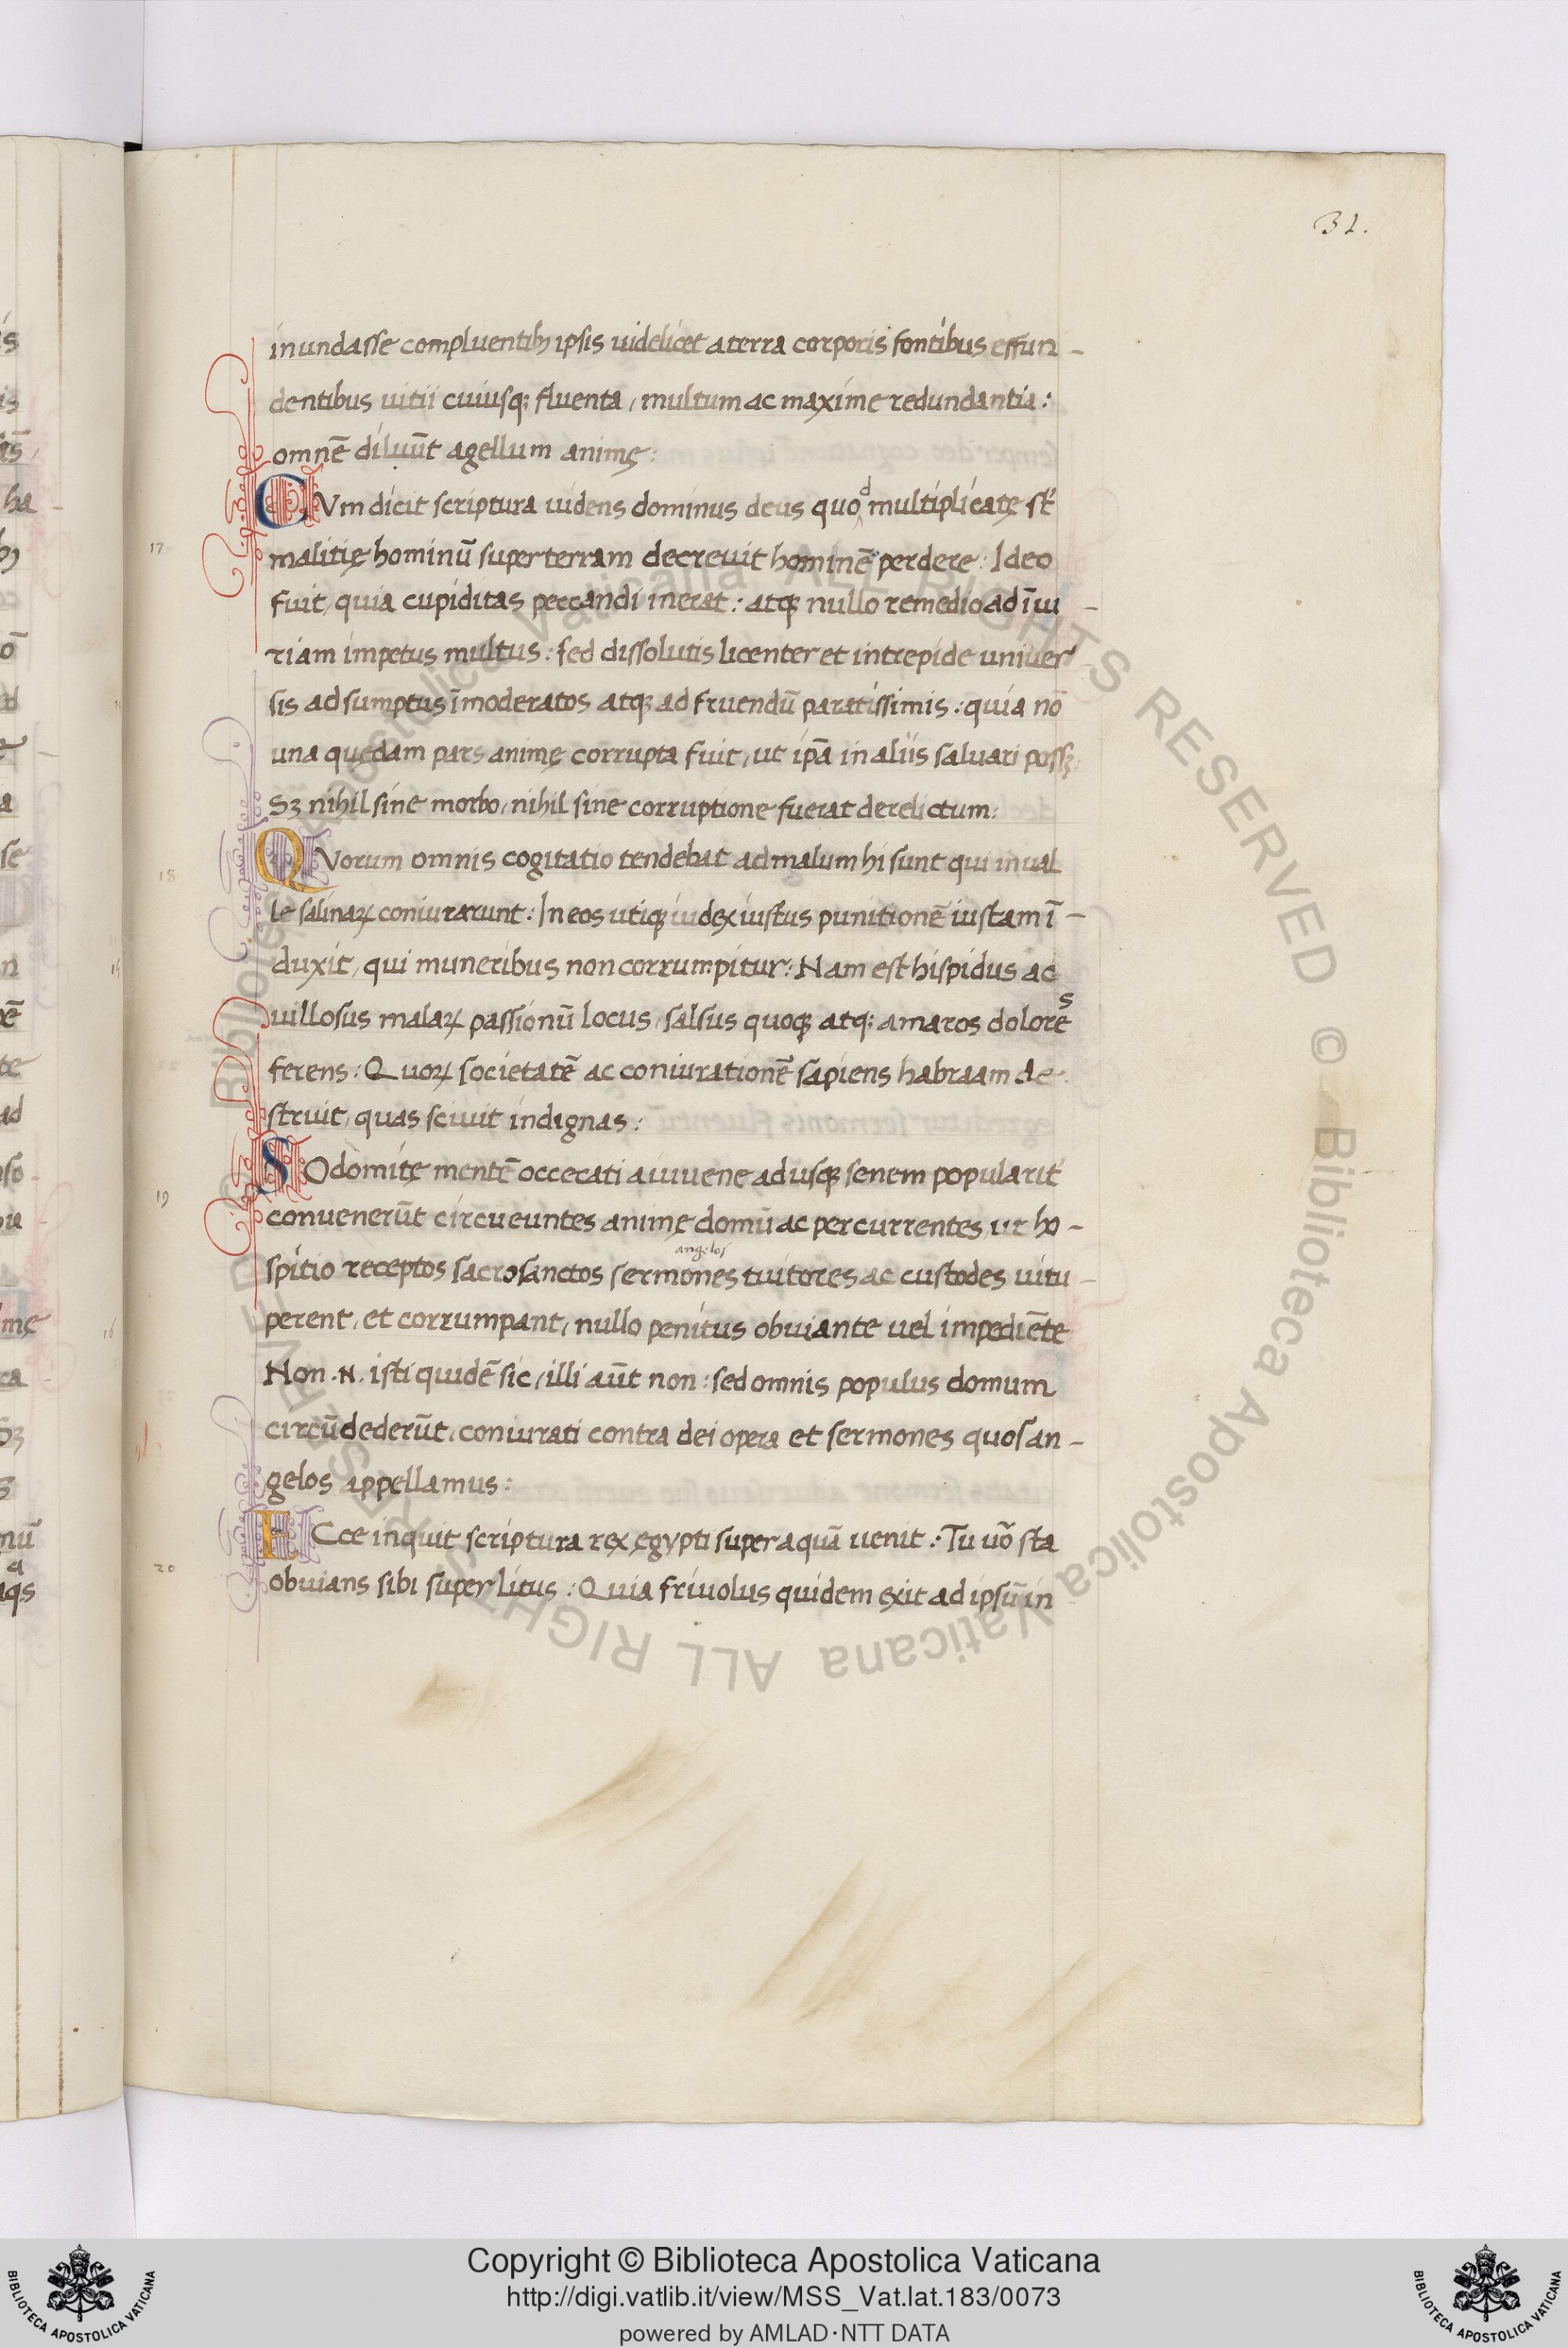 32.
inundasse compluentibꝫ ipsis uidelicet a terra corporis fontibus effun-
dentibus uitii cuiusqꝫ fluenta, multum ac maxime redundantia:
omnē diluūt agellum animę:
CVm dicit scriptura uidens dominus deus quod multiplicatę st̄
17 malitię hominū super terram decreuit hominē perdere: Ideo
fuit, quia cupiditas peccandi inerat: atqꝫ nullo remedio ad īiu-
riam impetus multus: sed dissolutis licenter et intrepide uniuer
sis ad sumptus īmoderatos atqꝫ ad fruendū paratissimis: quia nō
una quędam pars animę corrupta fuit, ut ip̄a in aliis saluari possꝫ:
Sꝫ nihil sine morbo, nihil sine corruptione fuerat derelictum:
QVorum omnis cogitatio tendebat ad malum hi sunt qui in ual
18
le salinaꝝ coniurarunt: In eos utiqꝫ iudex iustus punitionē iustam ī-
duxit, qui muneribus non corrumpitur: Nam est hispidus ac
uillosus malaꝝ passionū locus, salsus quoqꝫ atqꝫ amaros dolores
ferens: Quoꝝ societatē ac coniurationē sapiens habraam de-
struit, quas sciuit indignas:
SOdomitę mentē occecati a iuuene adusqꝫ senem popularit᷑
19
conuenerūt circueuntes animę domū ac percurrentes, ut ho-
angelos
spitio receptos sacrosanctos sermones tuitores ac custodes uitu-
perent, et corrumpant, nullo penitus obuiante uel impediēte
Non .N. isti quidē sic, illi aūt non: sed omnis populus domum
circūdederūt, coniurati contra dei opera et sermones quos an-
gelos appellamus:
ECce inquit scriptura rex ęgypti super aquā uenit: Tu uō sta
20
obuians sibi super litus: Quia friuolus quidem exit ad ipsū in
Biblioteca Apostolica Vaticana ALL RIGHTS RESERVED © Biblioteca Apostolica Vaticana ALL RIGHTS RESERVED ©
Copyright © Biblioteca Apostolica Vaticana
http://digi.vatlib.it/view/MSS_Vat.lat.183/0073
powered by AMLAD·NTT DATA
BIBLIOTECA APOSTOLICA VATICANA
BIBLIOTECA APOSTOLICA VATICANA